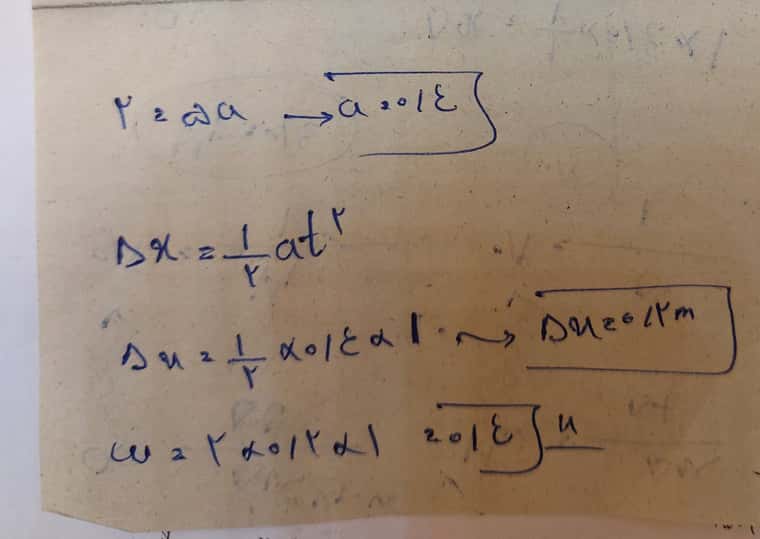 ۲ = ۵a → a = ۰/۴
Δx = ۱/۲ at^۲
Δx = ۱/۲ × ۰/۴ × ۱ ⤳ Δx = ۰/۲ m
w = ۲ × ۰/۲ × ۱ = ۰/۴ J